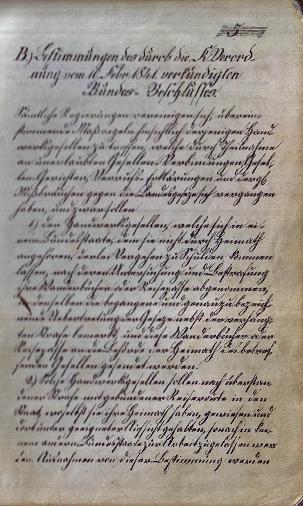 5
B.) Bestimmungen des durch die K. Verord-
nung vom 11. Febr. 1841. verkündigten
Bundes-Beschlusses.
Sämtliche Regierungen vereinigen sich, überein-
stimmende Maßregeln hinsichtlich derjenigen Hand-
werksgesellen zu treffen, welche durch Theilnahme
an unerlaubten Gesellen-Verbindungen, Gesel-
len-Gerichten, Verrufs-Erklärungen und dergl.
Mißbräuchen gegen die Landesgesetze sich vergangen
haben, und zwar sollen
1.) den Handwerksgesellen, welche sich in ei-
nem Bundesstaate, dem sie nicht durch Heimath
angehören, derlei Vergehen zu Schulden kommen
lassen, nach deren Untersuchung und Bestrafung
ihre Wanderbücher oder Reisepässe abgenommen,
in denselben die begangene und genau zu bezeich-
nende Uebertretung der Gesetze nebst der verhäng-
ten Strafe bemerkt, und diese Wanderbücher oder
Reisepässe an die Behörde der Heimath des betref-
fenden Gesellen gesendet werden.
2.) Solche Handwerksgesellen sollen nach überstan-
dener Strafe mit gebundener Reiseroute in den
Staat, wo selbst sie ihre Heimath haben, gewiesen und
dort unter geeigneter Aufsicht gehalten, sonach in kei-
nem andern Bundesstaate zur Arbeit zugelassen wer-
den. Ausnahmen von dieser Bestimmung werden